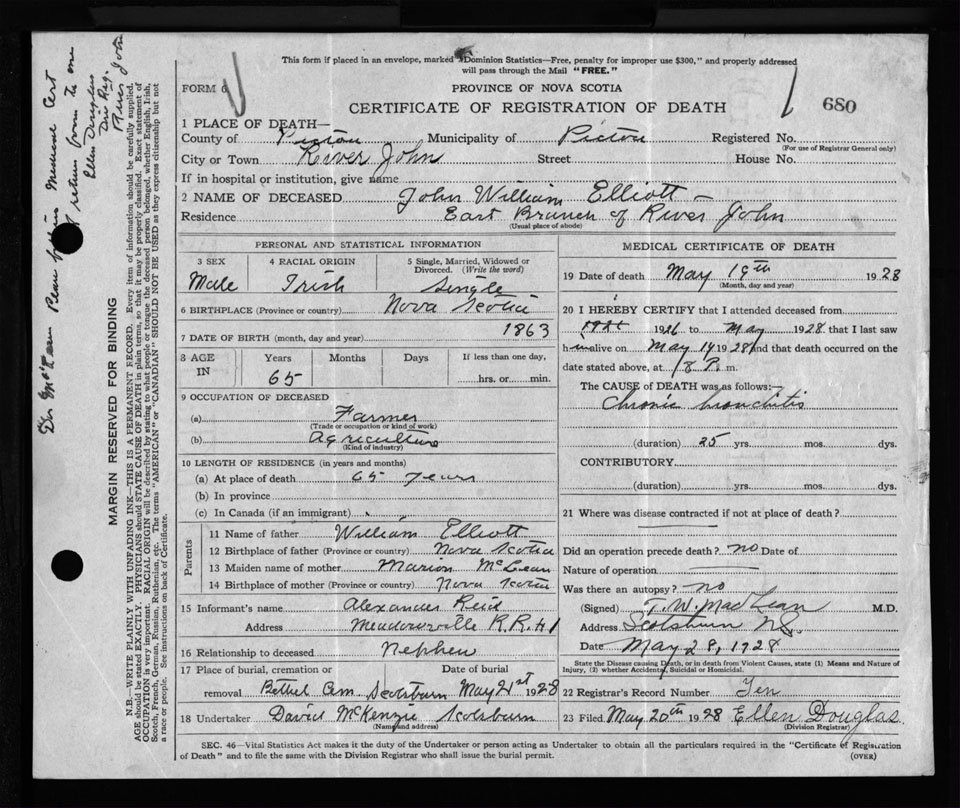 This form if placed in an envelope, marked "Dominion Statistics—Free, penalty for improper use $300," and properly addressed
will pass through the Mail "FREE."
FORM 6
PROVINCE OF NOVA SCOTIA
CERTIFICATE OF REGISTRATION OF DEATH
680
1 PLACE OF DEATH—
County of Pictou Municipality of Pictou Registered No.
(For use of Registrar General only)
City or Town River John Street House No.
If in hospital or institution, give name
2 NAME OF DECEASED John William Elliott —
Residence East Branch of River John
(Usual place of abode)
PERSONAL AND STATISTICAL INFORMATION
3 SEX 4 RACIAL ORIGIN 5 Single, Married, Widowed or
Divorced. (Write the word)
Male Irish Single
6 BIRTHPLACE (Province or country) Nova Scotia
7 DATE OF BIRTH (month, day and year) 1863
8 AGE IN Years Months Days If less than one day,
65 hrs. or min.
9 OCCUPATION OF DECEASED
(a) Farmer
(Trade or occupation or kind of work)
(b) Agriculture
(Kind of industry)
10 LENGTH OF RESIDENCE (in years and months)
(a) At place of death 65 years
(b) In province
(c) In Canada (if an immigrant)
Parents
11 Name of father William Elliott
12 Birthplace of father (Province or country) Nova Scotia
13 Maiden name of mother Marion McLean
14 Birthplace of mother (Province or country) Nova Scotia
15 Informant's name Alexander Reid
Address Meadowville R.R. #1
16 Relationship to deceased Nephew
17 Place of burial, cremation or Date of burial
removal Bethel Cem Scotsburn May 21st 1928
18 Undertaker David McKenzie Scotsburn
(Name and address)
MEDICAL CERTIFICATE OF DEATH
19 Date of death May 19th 1928
(Month, day and year)
20 I HEREBY CERTIFY that I attended deceased from
1926 to May 1928 that I last saw
him alive on May 14 1928 and that death occurred on the
date stated above, at 8 P. m.
The CAUSE OF DEATH was as follows:—
Chronic bronchitis
(duration) 25 yrs. mos. dys.
CONTRIBUTORY
(duration) yrs. mos. dys.
21 Where was disease contracted if not at place of death?
Did an operation precede death? no Date of
Nature of operation
Was there an autopsy? no
(Signed) T. W. MacLean M.D.
Address Scotsburn N.S.
Date May 28, 1928
State the Disease causing Death, or in death from Violent Causes, state (1) Means and Nature of
Injury, (2) whether Accidental, Suicidal or Homicidal.
22 Registrar's Record Number Ten
23 Filed May 20th 1928 Ellen Douglas
(Division Registrar)
SEC. 46—Vital Statistics Act makes it the duty of the Undertaker or person acting as Undertaker to obtain all the particulars required in the "Certificate of Registration
of Death" and to file the same with the Division Registrar who shall issue the burial permit.
(OVER)
MARGIN RESERVED FOR BINDING
N.B.—WRITE PLAINLY WITH UNFADING INK—THIS IS A PERMANENT RECORD. Every item of information should be carefully supplied.
AGE should be stated EXACTLY. PHYSICIANS should STATE CAUSE OF DEATH in plain terms, so that it may be properly classified. Exact statement of
OCCUPATION is very important. RACIAL ORIGIN will be described by stating to what people or tongue the deceased person belonged, whether English, Irish,
Scotch, French, German, Russian, Ruthenian, etc. The terms "AMERICAN" or "CANADIAN" SHOULD NOT BE USED as they express citizenship but not
a race or people. See instructions on back of Certificate.
Dr McLean Please
return form to me
Ellen Douglas
Div Reg.
River John